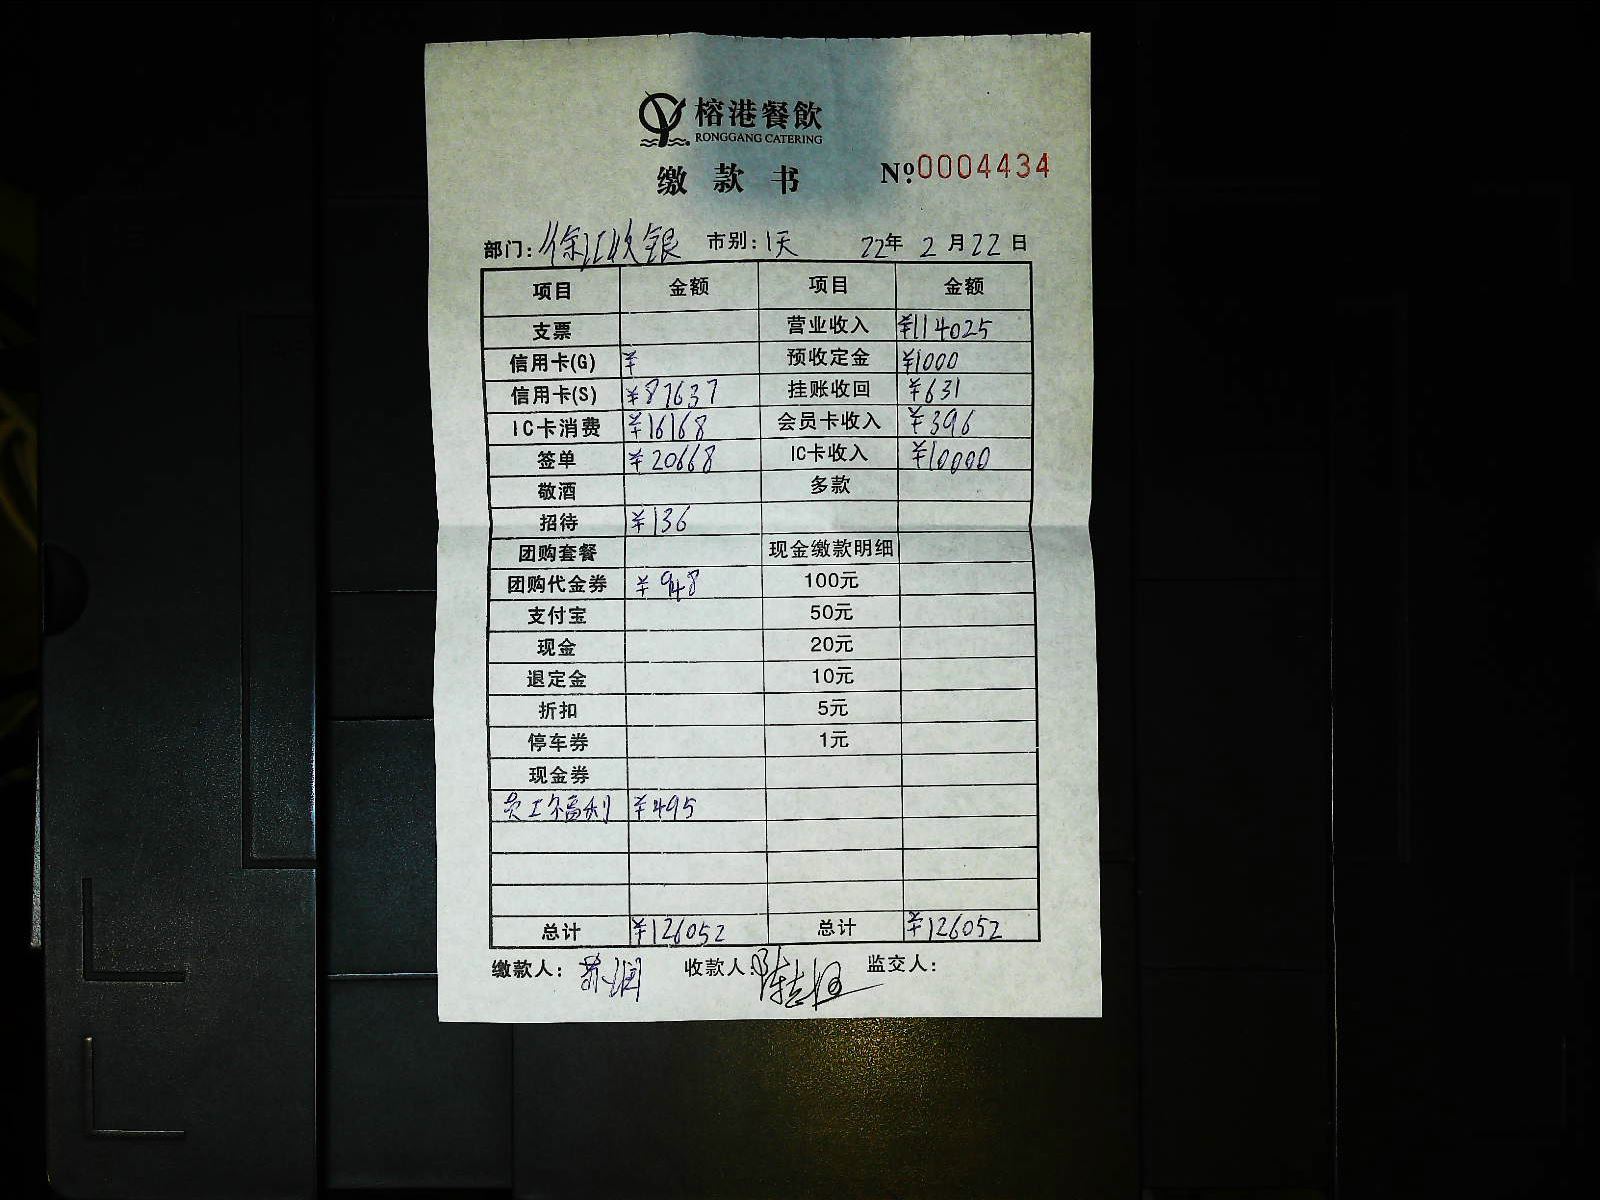 榕港餐飲
RONGGANG CATERING
缴款书 № 0004434
部门: 徐汇收银 市别: 1天 22年 2月22日
项目 金额 项目 金额
支票 营业收入 ¥114025
信用卡(G) ¥ 预收定金 ¥1000
信用卡(S) ¥87637 挂账收回 ¥631
IC卡消费 ¥16168 会员卡收入 ¥396
签单 ¥20668 IC卡收入 ¥10000
敬酒 多款
招待 ¥136
团购套餐 现金缴款明细
团购代金券 ¥948 100元
支付宝 50元
现金 20元
退定金 10元
折扣 5元
停车券 1元
现金券
员工福利 ¥495
总计 ¥126052 总计 ¥126052
缴款人: 收款人: 监交人: